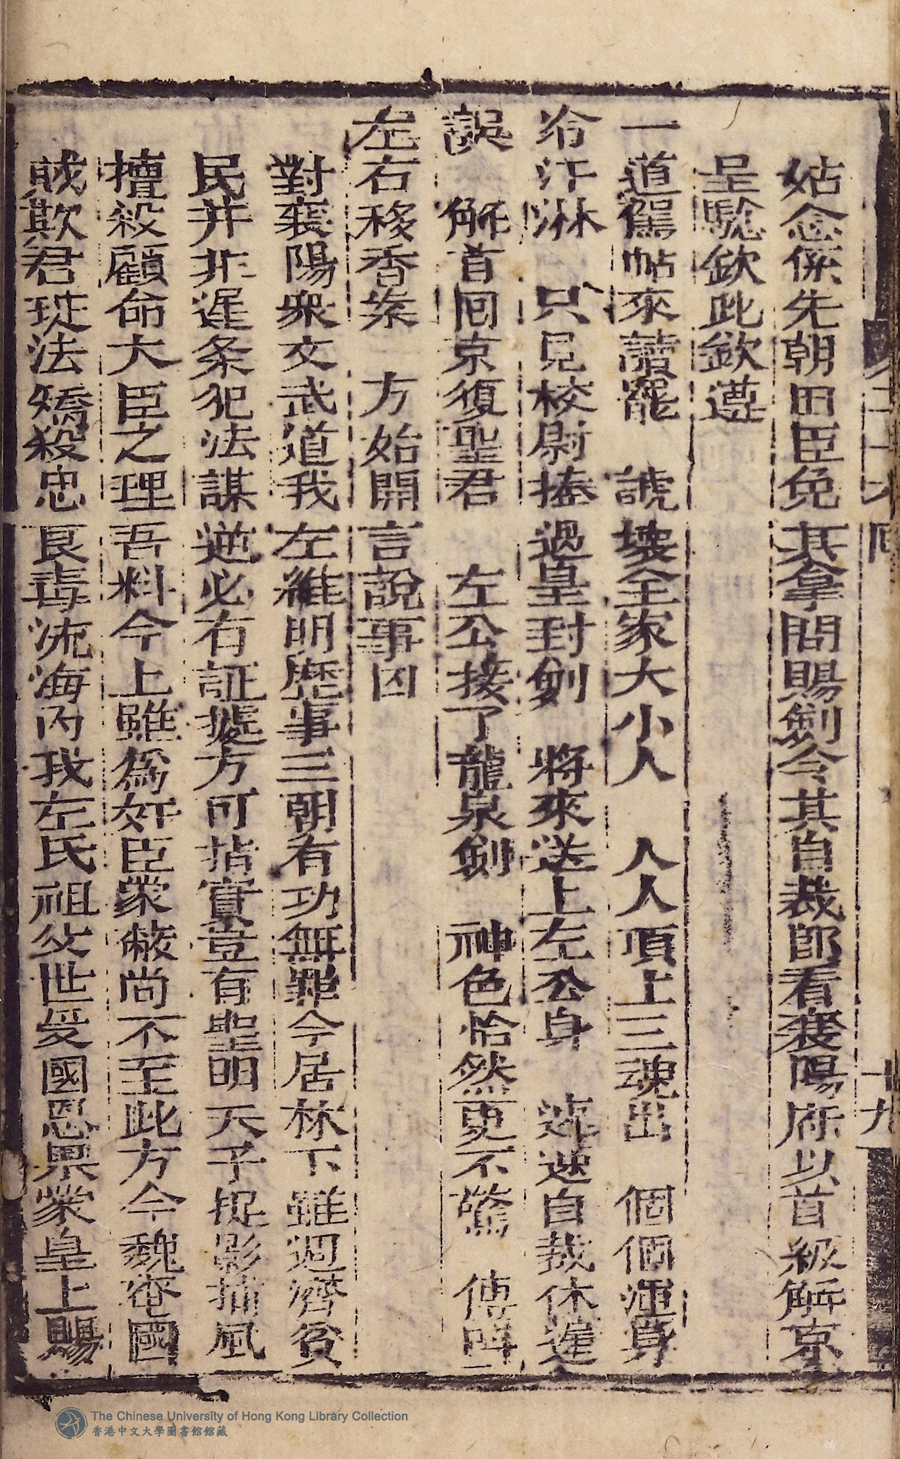 姑念係先朝旧臣免其拿問賜劍令其自裁郎看襄陽府以首級解京
呈驗欽此欽遵
一道駕帖來讀罷　諕壞全家大小人　人人項上三魂出　個個渾身
冷汗淋　只見校尉捧過皇封劍　將來送上左公身　速速自裁休遲
誤　解首回京復聖君　左公接了龍泉劍　神色恰然更不驚　傳呼
左右移香案　方始開言説事因
對襄陽衆文武道我左維明歷事三朝有功無罪今居林下雖週濟貧
民并非遅条犯法謀逆必有証㨿方可指實豈有聖明天子捉影捕風
擅殺顧命大臣之理吾料今上雖為奸臣蒙蔽尚不至此方今魏奄國
賊欺君玩法矯殺忠良毒流海内我左氏祖父世受國恩累蒙皇上賜
十九
The Chinese University of Hong Kong Library Collection
香港中文大學圖書館館藏